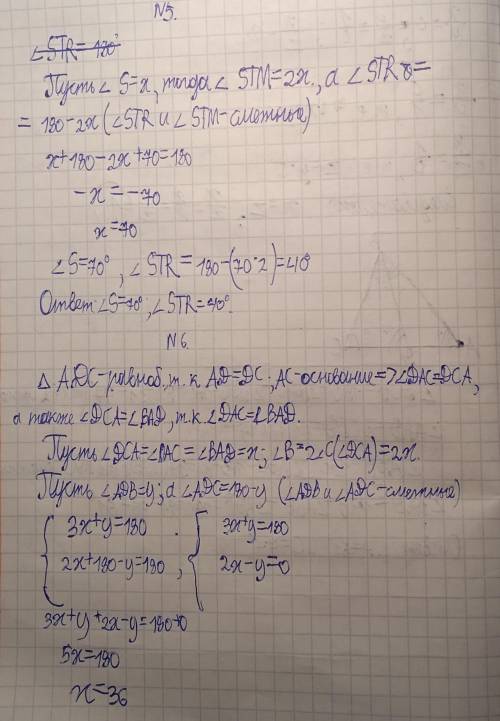 N5.
∠STR = 180°
Пусть ∠ S=x, тогда ∠ STM=2x, а ∠STR =
= 180-2x (∠STR и ∠STM-смежные)
x+180-2x+70=180
-x = -70
x=70
∠S=70°, ∠STR = 180-(70·2)=40°
Ответ: ∠S=70°, ∠STR=40°.
N6.
Δ ADC-равноб., т.к. AD=DC; AC-основание=>∠DAC=DCA,
а также ∠DCA=∠BAD, т.к. ∠DAC=∠BAD.
Пусть ∠DCA=∠DAC=∠BAD=x; ∠B=2∠C(∠DCA)=2x.
Пусть ∠ADB=y; а ∠ADC=180-y (∠ADB и ∠ADC-смежные)
3x+y=180 3x+y=180
2x+180-y=180, 2x-y=0
3x+y+2x-y=180+0
5x=180
x=36